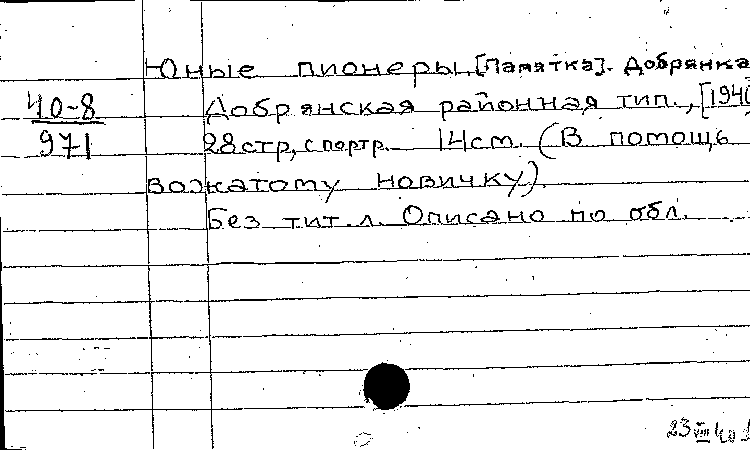 Юные пионеры. [Памятка]. Добрянка
40-8
971
Добрянская районная тип., [1940
28стр, с портр. 14см. (В помощь
вожатому новичку).
Без тит. л. Описано по обл.
23 VIII 40